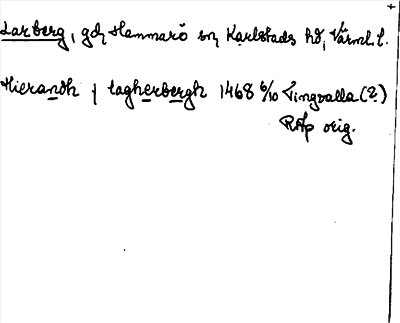 Larberg, gd, Hammarö sn, Karlstads hd, Värml. l.
Hierandh j lagherbergh 1468 6/10 Tingvalla (?)
RAp orig.